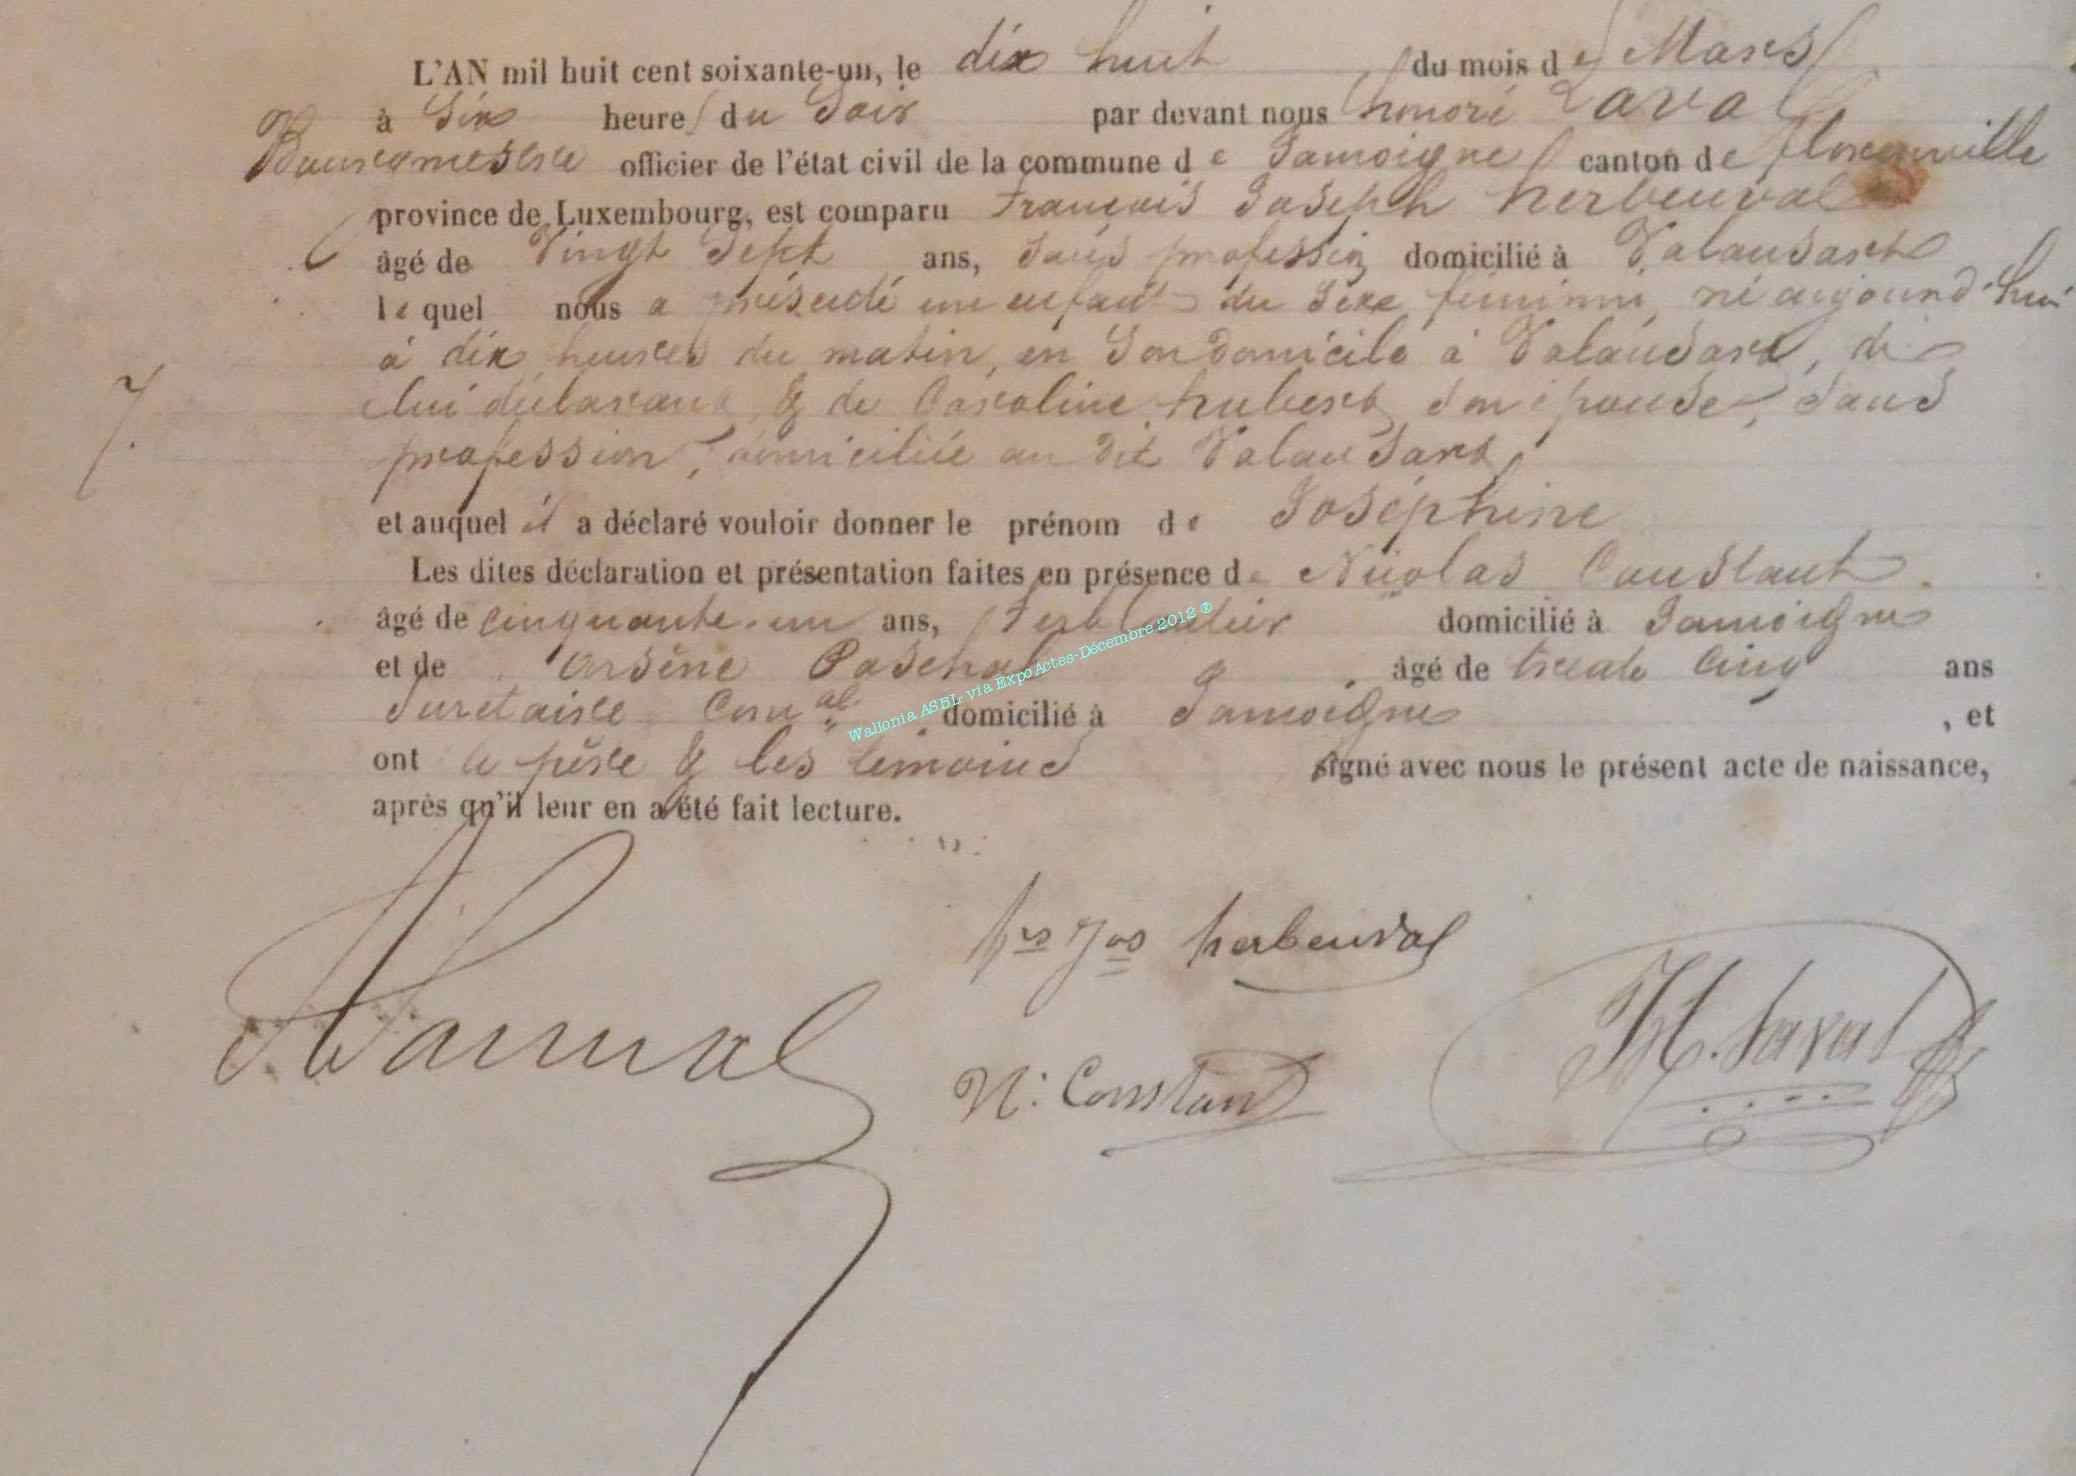 L'AN mil huit cent soixante-un, le dix huit du mois de Mars
à Six heures du Soir par devant nous honoré Laval
Bourgmestre officier de l'état civil de la commune de Jamoigne canton de florenville
province de Luxembourg, est comparu François Joseph herbeuval
âgé de Vingt Sept ans, Sans profession domicilié à Valansart
lequel nous a présenté un enfant du Sexe féminin, né aujourd'hui
à dix heures du matin, en Son domicile à Valansart, de
lui déclarant & de Caroline hubert Son épouse, Sans
profession, domiciliée au dit Valansart
7.
et auquel il a déclaré vouloir donner le prénom de Joséphine
Les dites déclaration et présentation faites en présence de Nicolas Constant
âgé de cinquante-un ans, domicilié à Jamoigne
et de Arsène Paschal âgé de trente Cinq ans
Secretaire Com.al domicilié à Jamoigne, et
ont le père & les témoins signé avec nous le présent acte de naissance,
après qu'il leur en a été fait lecture.
Wallonia ASBL, via Expo Actes-Décembre 2012 ®
frs Jos herbeuval
H. Laval
N: Constant